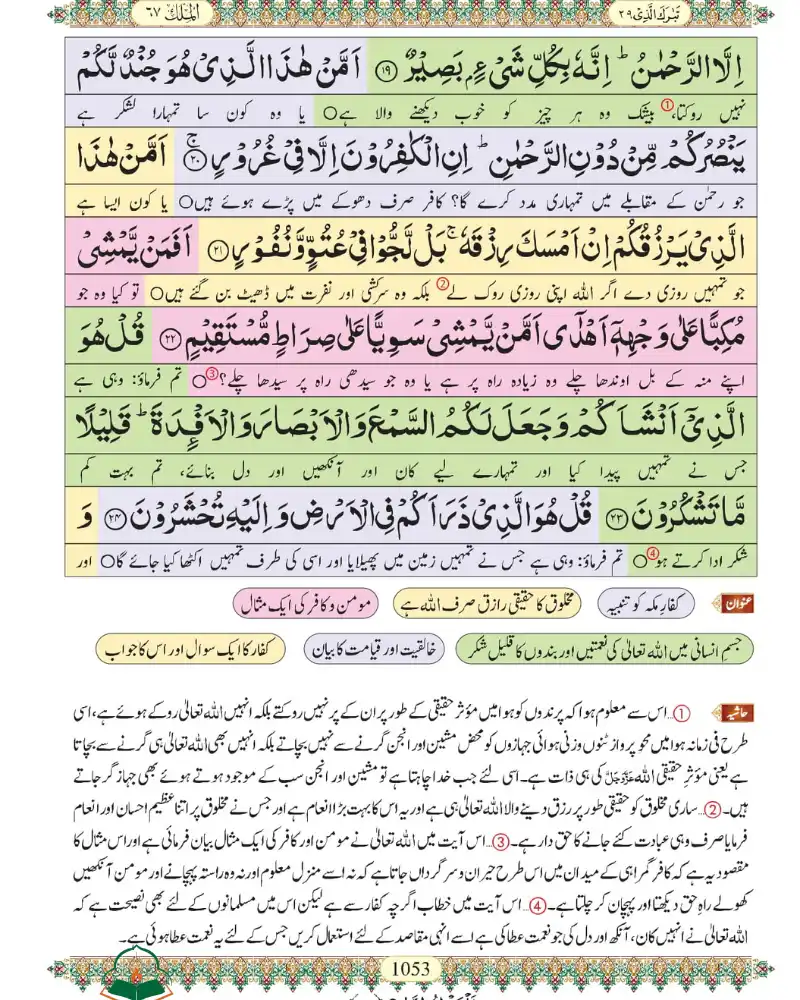 تَبٰرَكَ الَّذِیْ ٢٩
اَلْمُلْك ٦٧
اِلَّا الرَّحْمٰنُ ؕ اِنَّهٗ بِكُلِّ شَیْءٍۭ بَصِیْرٌ ﴿١٩﴾ اَمَّنْ هٰذَا الَّذِیْ هُوَ جُنْدٌ لَّكُمْ
نہیں روکتا،① بیشک وہ ہر چیز کو خوب دیکھنے والا ہے○ یا وہ کون سا تمہارا لشکر ہے
یَنْصُرُكُمْ مِّنْ دُوْنِ الرَّحْمٰنِ ؕ اِنِ الْكٰفِرُوْنَ اِلَّا فِیْ غُرُوْرٍ ﴿٢٠﴾ۚ اَمَّنْ هٰذَا
جو رحمٰن کے مقابلے میں تمہاری مدد کرے گا؟ کافر صرف دھوکے میں پڑے ہوئے ہیں○ یا کون ایسا ہے
الَّذِیْ یَرْزُقُكُمْ اِنْ اَمْسَكَ رِزْقَهٗ ۚ بَلْ لَّجُّوْا فِیْ عُتُوٍّ وَّ نُفُوْرٍ ﴿٢١﴾ اَفَمَنْ یَّمْشِیْ
جو تمہیں روزی دے اگر اللہ اپنی روزی روک لے② بلکہ وہ سرکشی اور نفرت میں ڈھیٹ بن گئے ہیں○ تو کیا وہ جو
مُكِبًّا عَلٰی وَجْهِهٖۤ اَهْدٰۤی اَمَّنْ یَّمْشِیْ سَوِیًّا عَلٰی صِرَاطٍ مُّسْتَقِیْمٍ ﴿٢٢﴾ قُلْ هُوَ
اپنے منہ کے بل اوندھا چلے وہ زیادہ راہ پر ہے یا وہ جو سیدھی راہ پر سیدھا چلے؟③○ تم فرماؤ: وہی ہے
الَّذِیْۤ اَنْشَاَكُمْ وَ جَعَلَ لَكُمُ السَّمْعَ وَ الْاَبْصَارَ وَ الْاَفْـِٕدَةَ ؕ قَلِیْلًا
جس نے تمہیں پیدا کیا اور تمہارے لیے کان اور آنکھیں اور دل بنائے، تم بہت کم
مَّا تَشْكُرُوْنَ ﴿٢٣﴾ قُلْ هُوَ الَّذِیْ ذَرَاَكُمْ فِی الْاَرْضِ وَ اِلَیْهِ تُحْشَرُوْنَ ﴿٢٤﴾ وَ
شکر ادا کرتے ہو④○ تم فرماؤ: وہی ہے جس نے تمہیں زمین میں پھیلایا اور اسی کی طرف تمہیں اکٹھا کیا جائے گا○ اور
عنوان کفارِ مکہ کو تنبیہ مخلوق کا حقیقی رازق صرف اللہ ہے مومن و کافر کی ایک مثال
جسمِ انسانی میں اللہ تعالیٰ کی نعمتیں اور بندوں کا قلیل شکر خالقیت اور قیامت کا بیان کفار کا ایک سوال اور اس کا جواب
حاشیہ ①...اس سے معلوم ہوا کہ پرندوں کو ہوا میں مؤثرِ حقیقی کے طور پر ان کے پر نہیں روکتے بلکہ انہیں اللہ تعالیٰ روکے ہوئے ہے، اسی
طرح فی زمانہ ہوا میں محوِ پرواز ٹنوں وزنی ہوائی جہازوں کو محض مشین اور انجن گرنے سے نہیں بچاتے بلکہ انہیں بھی اللہ تعالیٰ ہی گرنے سے بچاتا
ہے یعنی مؤثرِ حقیقی اللہ عَزَّوَجَلَّ کی ہی ذات ہے۔ اسی لئے جب خدا چاہتا ہے تو مشین اور انجن سب کے موجود ہوتے ہوئے بھی جہاز گر جاتے
ہیں۔ ②...ساری مخلوق کو حقیقی طور پر رزق دینے والا اللہ تعالیٰ ہی ہے اور یہ اس کا بہت بڑا انعام ہے اور جس نے مخلوق پر اتنا عظیم احسان اور انعام
فرمایا صرف وہی عبادت کئے جانے کا حق دار ہے۔ ③...اس آیت میں اللہ تعالیٰ نے مومن اور کافر کی ایک مثال بیان فرمائی ہے اور اس مثال کا
مقصود یہ ہے کہ کافر گمراہی کے میدان میں اس طرح حیران و سرگرداں جاتا ہے کہ نہ اسے منزل معلوم اور نہ وہ راستہ پہچانے اور مومن آنکھیں
کھولے راہِ حق دیکھتا اور پہچان کر چلتا ہے۔ ④...اس آیت میں خطاب اگرچہ کفار سے ہے لیکن اس میں مسلمانوں کے لئے بھی نصیحت ہے کہ
اللہ تعالیٰ نے انہیں کان، آنکھ اور دل کی جو نعمت عطا کی ہے اسے انہی مقاصد کے لئے استعمال کریں جس کے لئے یہ نعمت عطا ہوئی ہے۔
1053